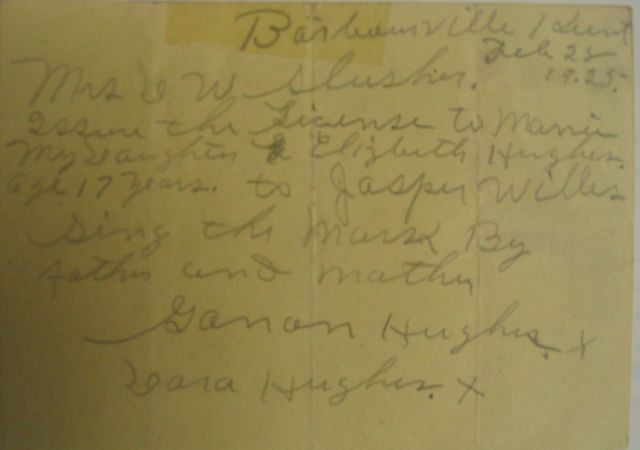 Barbourville Kent
Feb 28
1925.
Mrs D W Slusher.
Issure the License to Marrie
My Daughter Elizbeth Hughes.
age 17 years. to Jasper Willis
Sing the Mark By
father and mather
Ganon Hughes. x
Dara Hughes. x